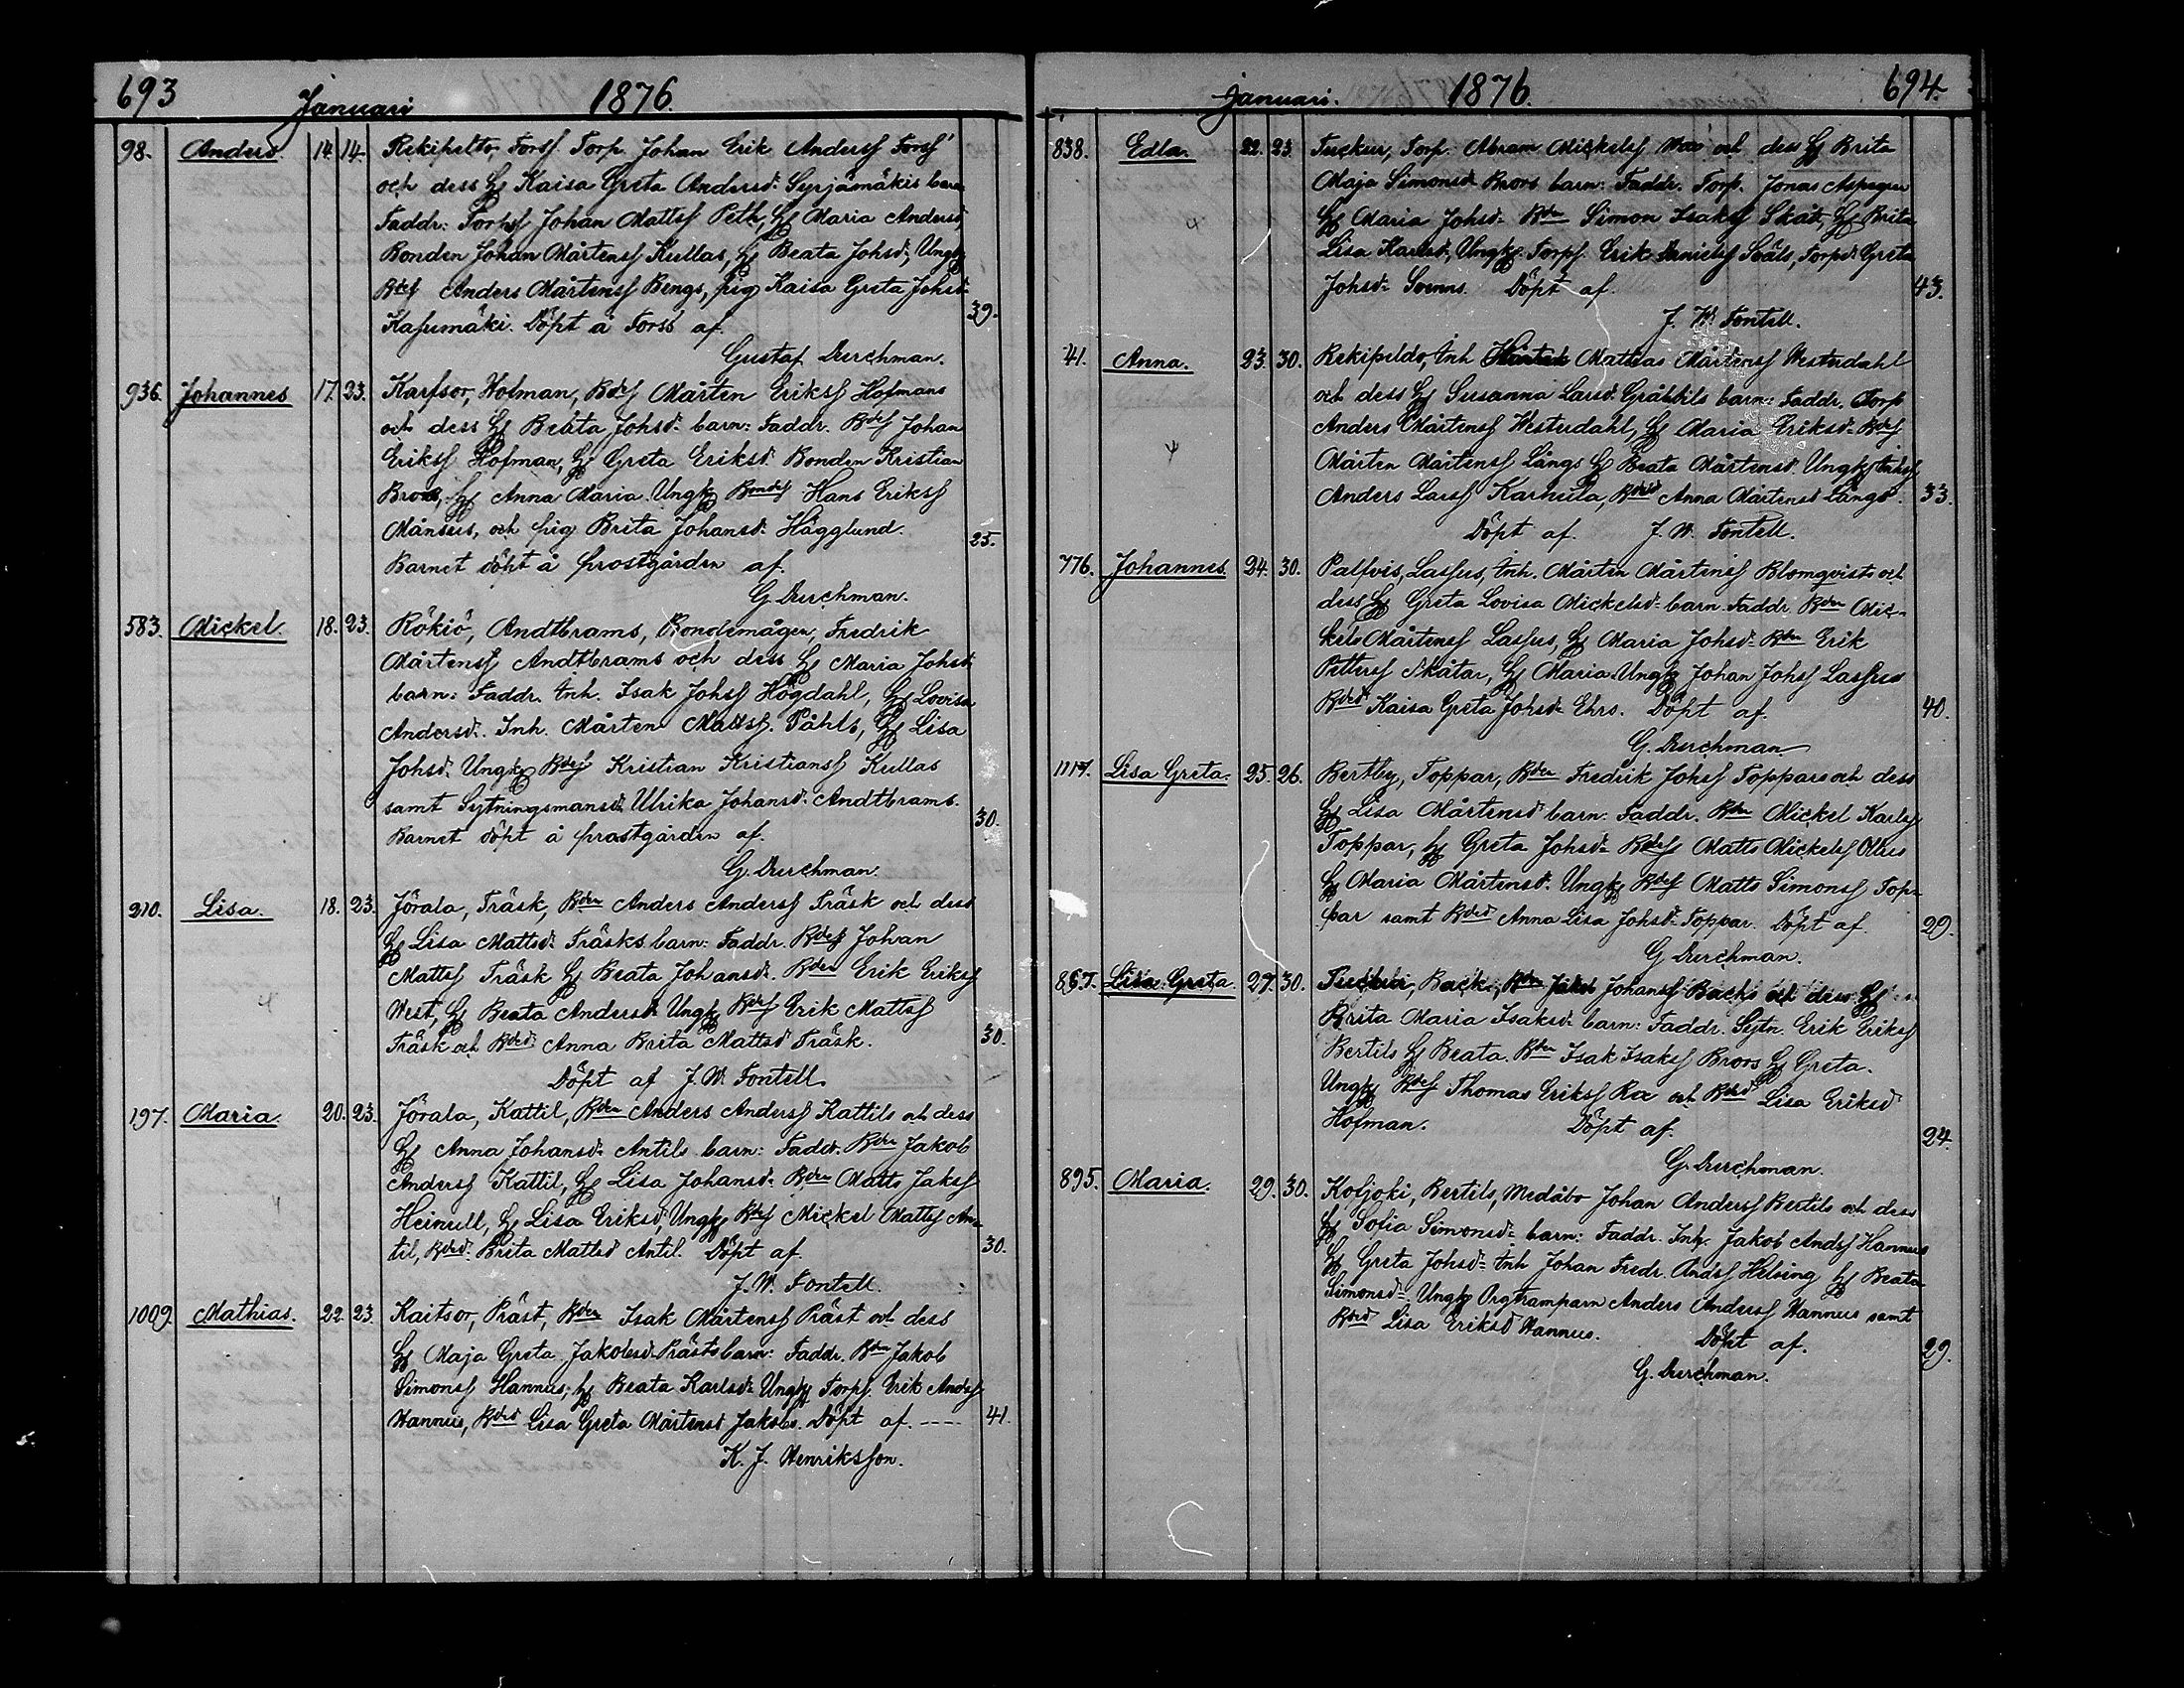 693 Januari 1876.
98. Anders. 14. 14. Rekipelto, Forss Torp. Johan Erik Anderss Forss
och dess Hu Kaisa Greta Andersd: Syrjämäkis barn
Faddr: Torpss Johan Mattss Peth, Hu Maria Andersd,
Bonden Johan Mårtenss Kullas, Hu Beata Johsd:, Ungk
Bdess Anders Mårtenss Bengs, pig Kaisa Greta Johsd:
Kasumäki. Döpt å Forss af. 39.
Gustaf Durchman.
936. Johannes 17. 23. Karfsor, Hofman, Bdess Mårten Erikss Hofmans
och dess Hu Beata Johsd: barn: Faddr. Bdess Johan
Erikss Hofman, Hu Greta Eriksd. Bonden Kristian
Broos, Hu Anna Maria. Ungk Bondess Hans Erikss
Månsus, och pig Brita Johansd: Hägglund. 25.
Barnet döpt å prostgården af.
G. Durchman.
583. Mickel. 18. 23. Rökiö, Andtbrams, Bondemågen, Fredrik
Mårtenss Andtbrams och dess Hu Maria Johsd:
barn: Faddr. Inh. Isak Johss Högdahl, Hu Lovisa
Andersd:. Inh. Mårten Mattss. Påhls, Hu Lisa
Johsd: Ungk Bdess Kristian Kristianss Kullas
samt Sytningsmansd: Ulrika Johansd: Andtbrams. 30.
Barnet döpt å prostgården af.
G. Durchman.
210. Lisa. 18. 23. Jörala, Träsk, Bden Anders Anderss Träsk och dess
Hu Lisa Mattsd: Träsks barn: Faddr. Bdess Johan
Mattss Träsk Hu Beata Johansd:. Bden Erik Erikss
West, Hu Beata Andersd: Ungk Bdess Erik Mattss
Träsk och Bdesd: Anna Brita Mattsd Träsk. 30.
Döpt af J. W. Fontell.
197. Maria. 20. 23. Jörala, Kattil, Bden Anders Anderss Kattils och dess
Hu Anna Johansd: Antils barn: Faddr. Bden Jakob
Anderss Kattil, Hu Lisa Johansd: Bden Matts Jakss
Heinull, Hu Lisa Eriksd, Ungk Bdess Mickel Mattss An-
til, Bdesd: Brita Mattsd Antil. Döpt af. 30.
J. W. Fontell.
1009. Mathias. 22. 23. Kaitsor, Präst, Bden Isak Mårtenss Präst och dess
Hu Maja Greta Jakobsd. Prästs barn: Faddr. Bden Jakob
Simonss Hannus, Hu Beata Karlsd: Ungk Torpss. Erik Andss
Hannus, Bdesd Lisa Greta Mårtensd Jakobs. Döpt af. ---- 41.
K. J. Henriksson.
Januari. 1876. 694.
838. Edla. 22. 23. Tuckur, Torp. Abram Mickelss och dess Hu Brita
Maja Simonsd: Broos barn: Faddr. Torp. Jonas Aspegren
Hu Maria Johsd: Bden Simon Isakss Skåt, Hu Brita
Lisa Karlsd:, Ungk Torpss. Erik Danielss, Torpsd: Greta
Johsd: Svenns. Döpt af. 43.
J. W. Fontell.
41. Anna. 23. 30. Rekipeldo, Inh. Mattias Mårtenss Westerdahl
och dess Hu Susanna Larsd. Gråbbils barn: Faddr. Torp
Anders Mårtenss Westerdahl, Hu Maria Eriksd: Bdess
Mårten Mårtenss Långs Hu Beata Mårtensd. Ungk Inhss
Anders Larss Karhula, Bdesd Anna Mårtensd Långs. 33.
Döpt af. J. W. Fontell.
776. Johannes. 24. 30. Palfvis, Lassus, Inh. Mårten Mårtenss Blomqvists och
dess Hu Greta Lovisa Mickelsd: barn. Faddr. Bden Mic-
kels Mårtenss Lassus, Hu Maria Johsd: Bden Erik
Petterss Skåtar, Hu Maria. Ungk Johan Johss Lassus
Bdesd: Kaisa Greta Johsd: Ehrs. Döpt af. 40.
G. Durchman
1117. Lisa Greta. 25. 26. Bertby, Toppar, Bden Fredrik Johss Toppars och dess
Hu Lisa Mårtensd barn: Faddr. Bden Mickel Karlss
Toppar, Hu Greta Johsd: Bdess Matts Mickelss
Hu Maria Mårtensd: Ungk Bdess Matts Simonss Top-
par samt Bdesd Anna Lisa Johsd: Toppar. Döpt af. 29.
G Durchman.
867. Lisa Greta. 27. 30. Tuckur, Backs, Bden Jakob Johanss Backs och dess Hu
Brita Maria Isaksd: barn: Faddr. Sytn. Erik Erikss
Bertils Hu Beata. Bden Isak Isakss Broos Hu Greta.
Ungk Bdess Thomas Erikss Ra och Bdesd Lisa Eriksd
Hofman. Döpt af. 24.
G. Durchman.
895. Maria. 29. 30. Koljoki, Bertils, Medåbo Johan Anderss Bertils och dess
Hu Sofia Simonsd: barn: Faddr. Inh. Jakob Andss Hannus
Hu Greta Johsd: Inh Johan Fredr. Andss Helsing Hu Beata
Simonsd: Ungk Anders Anderss Hannus samt
Bdesd Lisa Eriksd Hannus. Döpt af. 29.
G. Durchman.